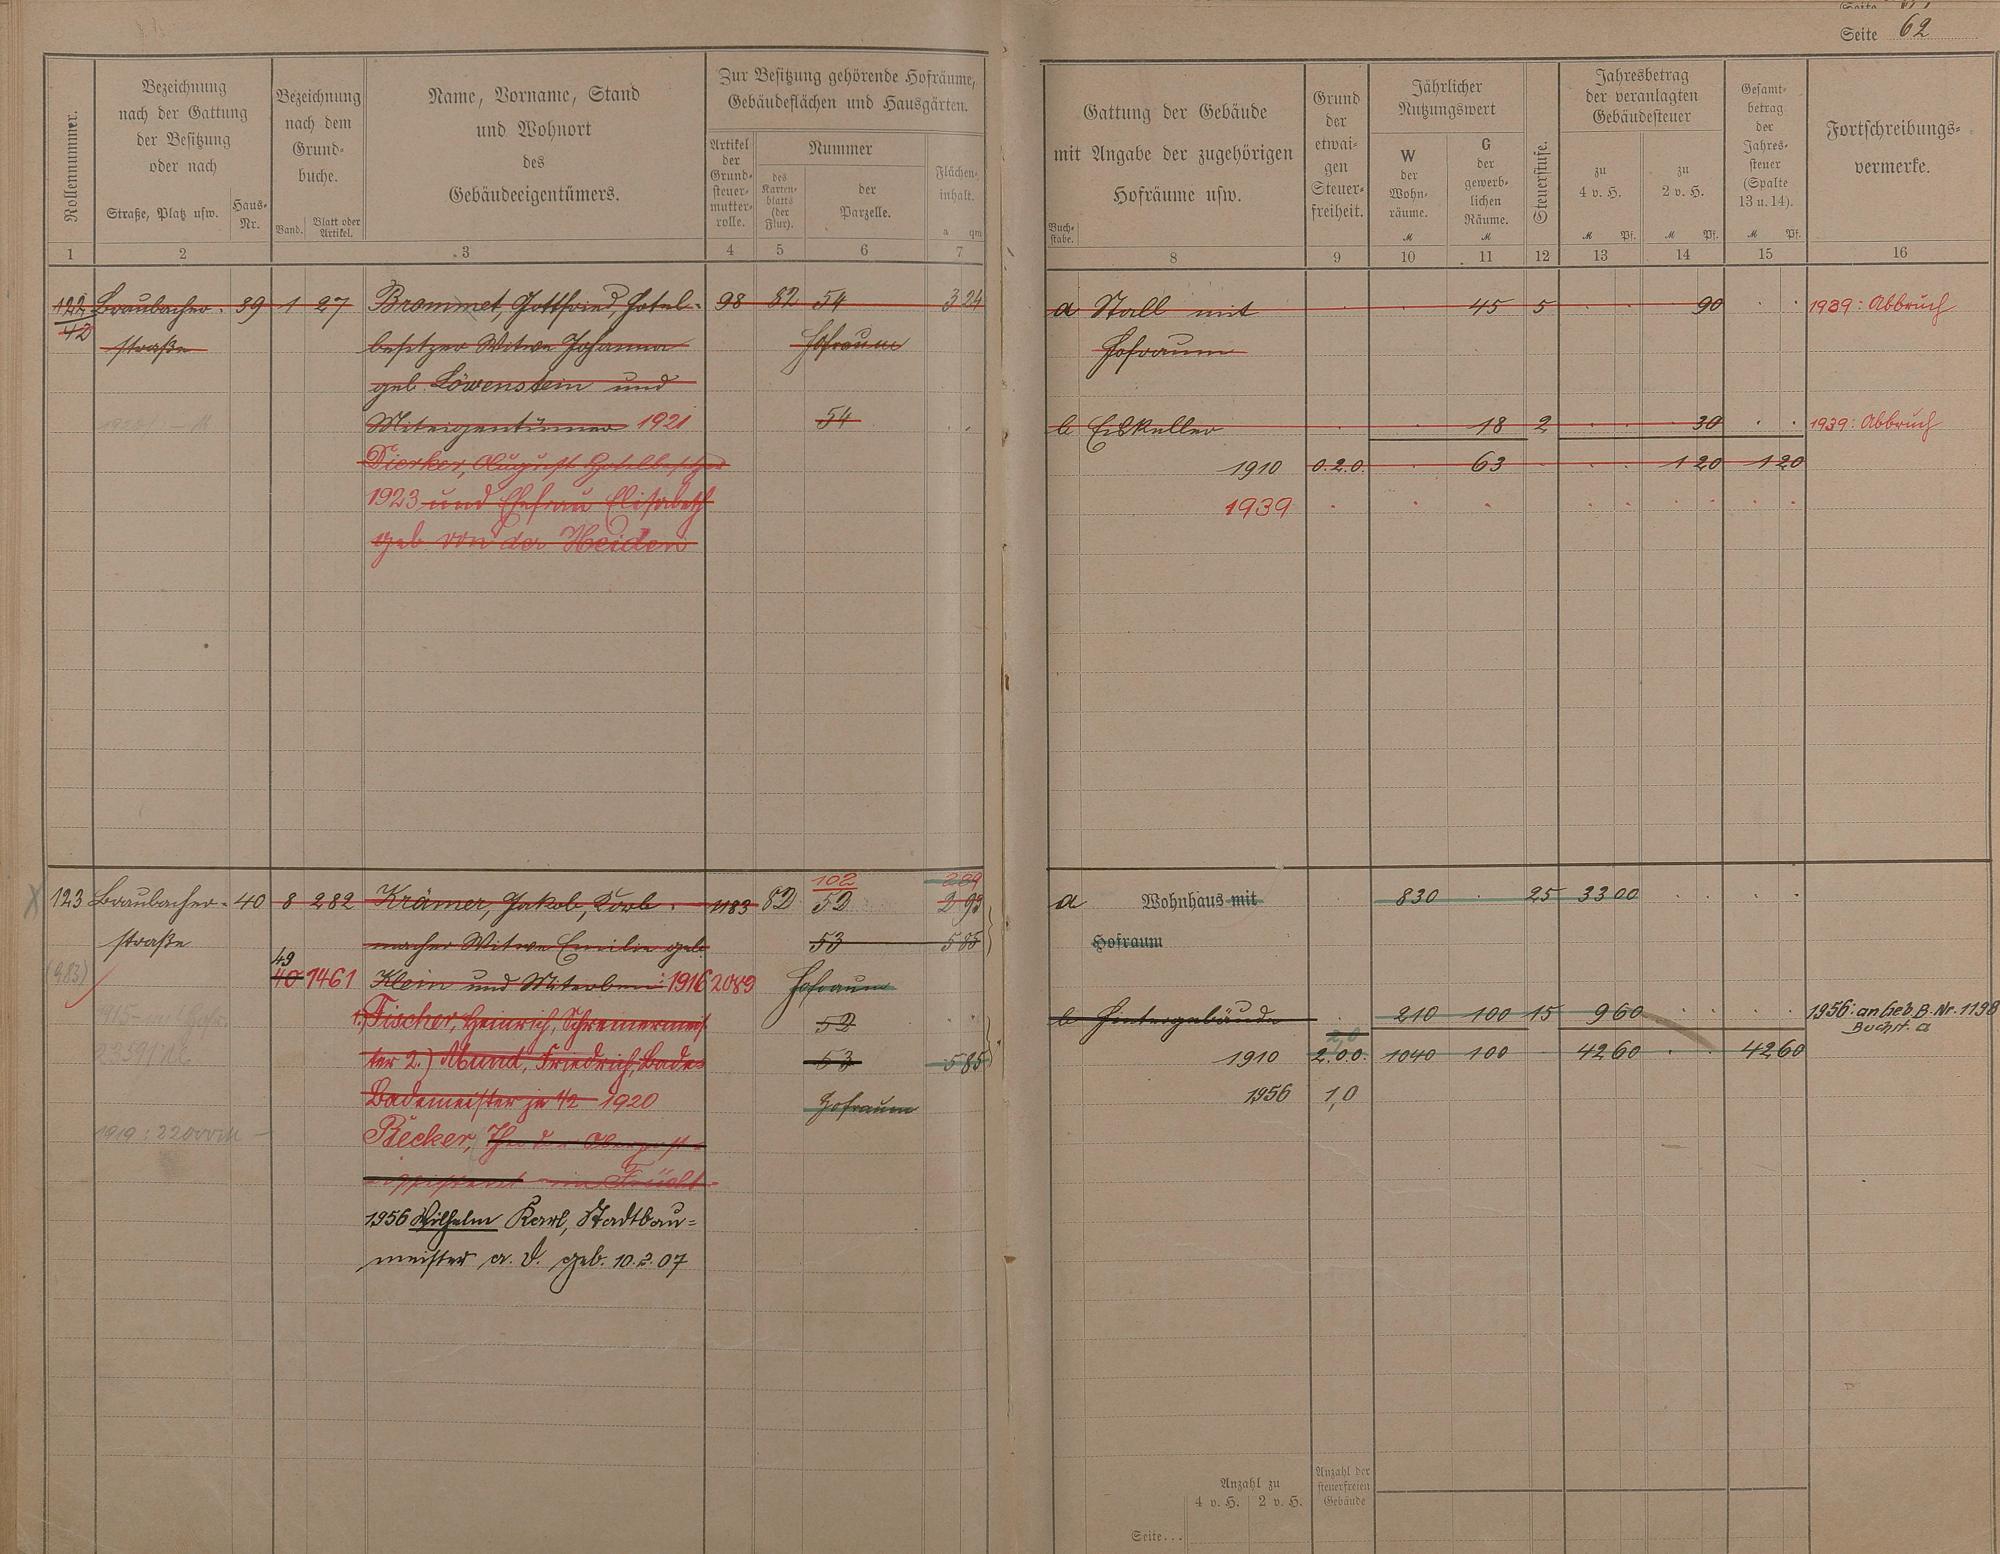 Seite 62
Rollennummer.
Bezeichnung
nach der Gattung
der Besitzung
oder nach
Straße, Platz usw.
Haus-
Nr.
Bezeichnung
nach dem
Grund-
buche.
Band.
Blatt oder
Artikel.
Name, Vorname, Stand
und Wohnort
des
Gebäudeeigentümers.
Zur Besitzung gehörende Hofräume,
Gebäudeflächen und Hausgärten.
Artikel
der
Grund-
steuer-
mutter-
rolle.
Nummer
des
Karten-
blatts
(der
Flur).
der
Parzelle.
Flächen-
inhalt.
a qm
1 2 3 4 5 6 7
Gattung der Gebäude
mit Angabe der zugehörigen
Hofräume usw.
Buch-
stabe.
Grund
der
etwai-
gen
Steuer-
freiheit.
Jährlicher
Nutzungswert
W
der
Wohn-
räume.
M
G
der
gewerb-
lichen
Räume.
M
Steuerstufe.
Jahresbetrag
der veranlagten
Gebäudesteuer
zu
4 v. H.
M Pf.
zu
2 v. H.
M Pf.
Gesamt-
betrag
der
Jahres-
steuer
(Spalte
13 u. 14).
M Pf.
Fortschreibungs-
vermerke.
8 9 10 11 12 13 14 15 16
122 Braubacher- 39 1 27 Brommet, Gottfried, Hotel- 98 82 54 3 24
42 straße besitzer Witwe Johanna Hofraum
geb. Löwenstein und
Miteigentümer 1921 54
Dierker, August Hotelbesitzer
1923 und Ehefrau Elisabeth
geb von der Heiden
a Stall mit 45 5 90 1939: Abbruch
Hofraum
b Eiskeller 18 2 30 1939: Abbruch
1910 0.2.0. 63 1 20 1 20
1939
102
123 Braubacher- 40 8 282 Krämer, Jakob, Korb- 1183 82 52 2 93
straße macher Witwe Emilie geb. 53 5 85
49
40 1461 Klein und Miterben: 1916 2089 Hofraum
1.) Fischer, Heinrich, Schreinermeis- 52
ter 2.) Mund, Friedrich, Bade- 53 5 85
Bademeister je 1/2 1920 Hofraum
1919: 22000M
Becker,
1956 Wilhelm Karl, Stadtbau=
meister a. D. geb. 10.2.07
a Wohnhaus mit 830 25 33 00
Hofraum
b Hintergebäude 210 100 15 9 60 1956: an Geb. B. Nr. 1198
Buchst. a
2,0
1910 2.0.0. 1040 100 42 60 42 60
1956 1,0
Anzahl zu
4 v. H. 2 v. H.
Anzahl der
steuerfreien
Gebäude
Seite...